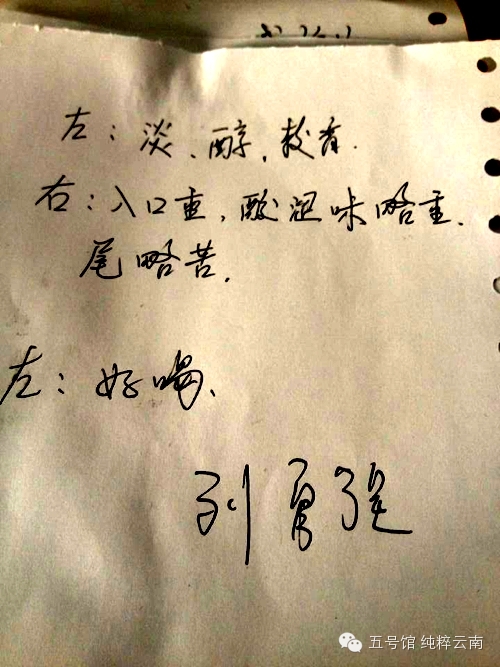 左：淡、醇，较香.
右：入口重，酸涩味略重.
尾略苦.
左：好喝、
刘勇强
五号馆 纯粹云南